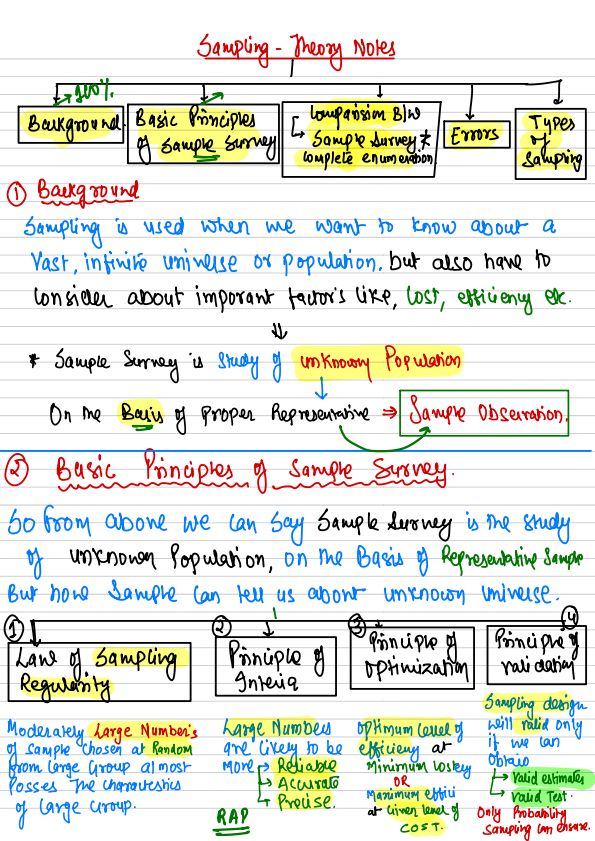 Sampling - Theory Notes
100%
Background
Basic Principles
of Sample Survey
Comparision B/w
Sample Survey &
Complete enumeration
Errors
Types
of
Sampling
① Background
Sampling is used when we want to know about a
Vast, infinite universe or population. but also have to
Consider about imporant factor's like, Cost, efficiency etc.
⇓
* Sample Survey is Study of unknown Population
On the Basis of Proper Representative ⇒ Sample Observation.
② Basic Principles of Sample Survey.
So from above we can Say Sample Survey is the study
of unknown Population, on the Basis of Representative Sample
But how Sample can tell us about unknown universe.
①
Law of Sampling
Regularity
Moderately Large Number's
of sample chosen at Random
from Large Group almost
Posses The charactestics
of Large Group.
②
Principle of
Interia
Large Numbers
are likely to be
more → Reliable
→ Accurate
→ Precise.
RAP
③
Principle of
Optimization
Optimum level of
efficieny at
Minimum Cost
OR
Maximum effici
at Given level of
COST.
④
Principle of
validation
Sampling design
will valid only
if we can
Obtain
→ valid estimates
→ valid Test.
Only Probability
Sampling can ensure.